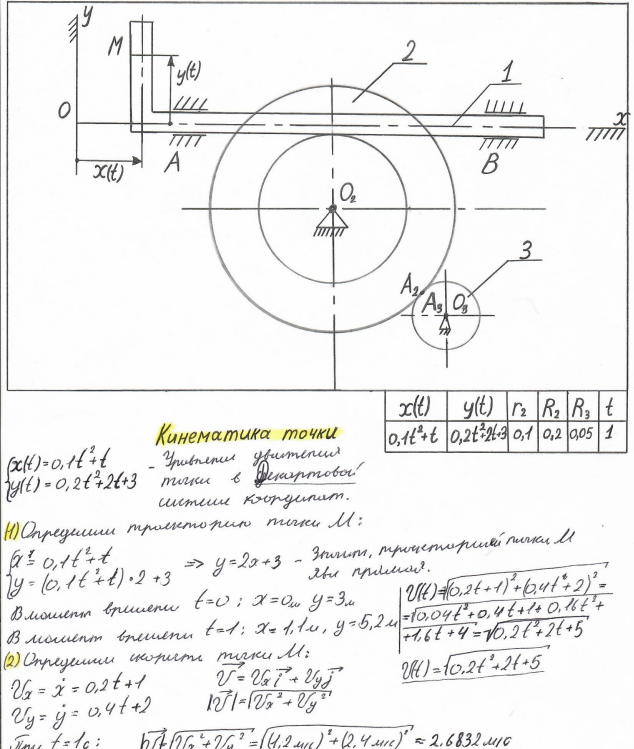 y
M
2
1
y(t)
O
x
A
B
x(t)
O₂
3
A₂
A₃
O₃
x(t) y(t) r₂ R₂ R₃ t
0,1t²+t 0,2t²+2t+3 0,1 0,2 0,05 1
Кинематика точки
{x(t)=0,1t²+t
{y(t)=0,2t²+2t+3
- Уравнения движения
точки в Декартовой
системе координат.
1) Определим траекторию точки М:
{x=0,1t²+t
{y=(0,1t²+t)·2+3
=> y=2x+3 - Значит, траекторией точки М
явл прямая.
В момент времени t=0; x=0м y=3м
В момент времени t=1; x=1,1м, y=5,2м
V(t)=√(0,2t+1)²+(0,4t+2)² =
=√0,04t²+0,4t+1+0,16t²+
+1,6t+4 =√0,2t²+2t+5
V(t)=√0,2t²+2t+5
2) Определим скорость точки М:
Vx = ẋ = 0,2t+1
Vy = ẏ = 0,4t+2
V⃗ = Vx i⃗ + Vy j⃗
|V⃗|=√Vx²+Vy²
При t=1с: |V⃗|=√Vx²+Vy² =√(1,2м/с)²+(2,4м/с)² = 2,6832м/с